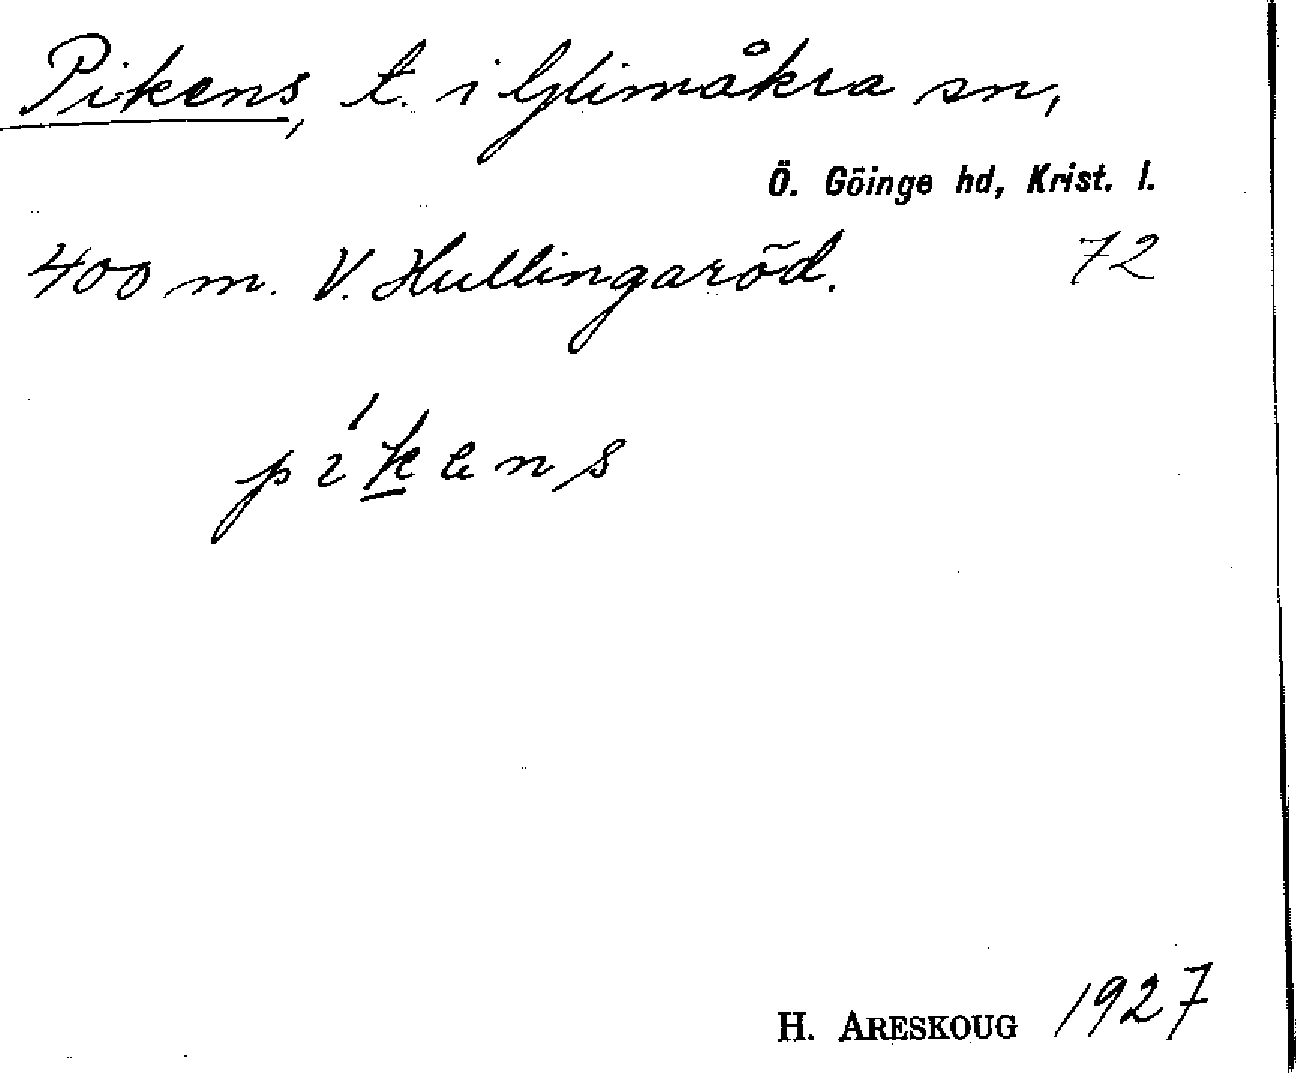 Pikens, t. i Glimåkra sn,
Ö. Göinge hd, Krist. l.
400 m. V. Hullingaröd. 72
píkens
H. ARESKOUG 1927